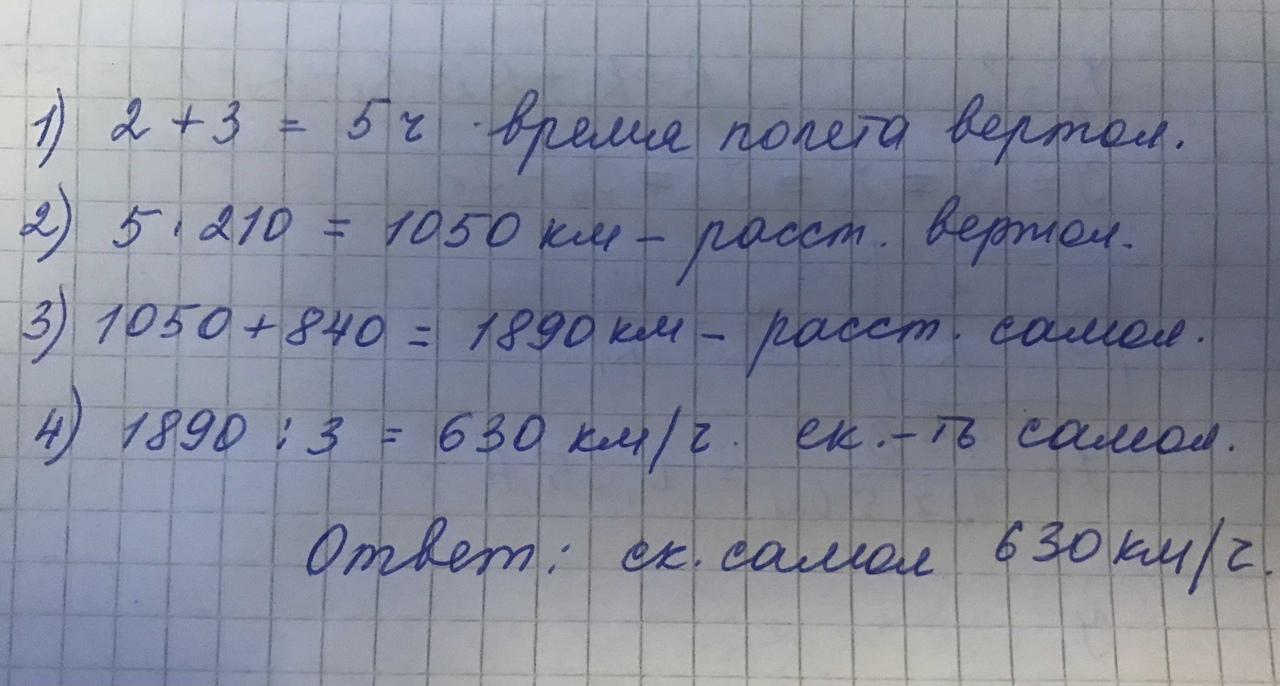 1) 2 + 3 = 5 ч - время полета вертол.
2) 5 · 210 = 1050 км - расст. вертол.
3) 1050 + 840 = 1890 км - расст. самол.
4) 1890 : 3 = 630 км/ч. ск.-ть самол.
Ответ: ск. самол 630 км/ч.